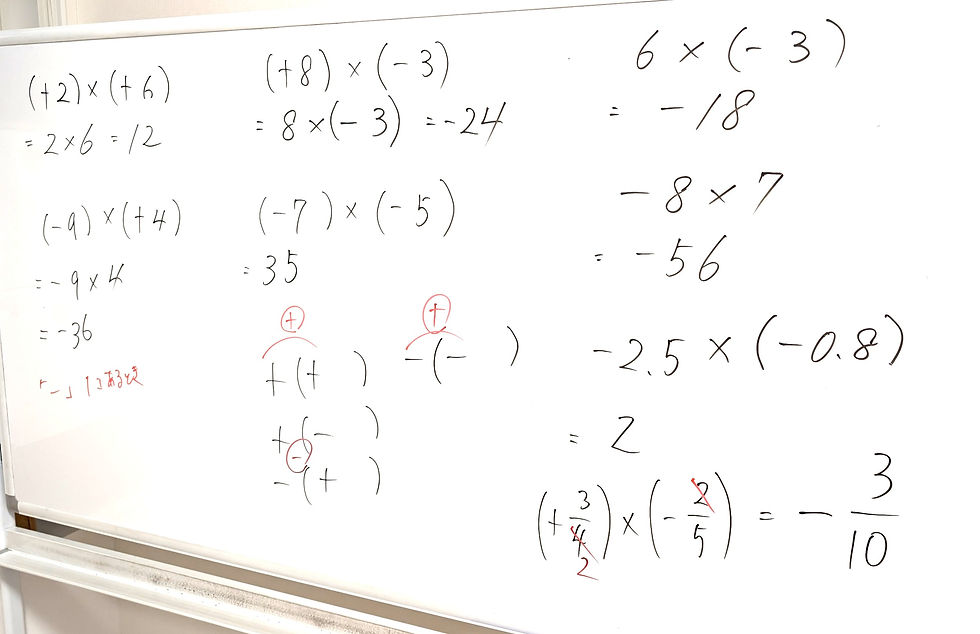 (+2)×(+6)
=2×6=12
(-9)×(+4)
=-9×4
=-36
「-」1こあるとき
(+8)×(-3)
=8×(-3)=-24
(-7)×(-5)
=35
+ +
+(+ ) -(- )
+(- )
-
-(+ )
6×(-3)
=-18
-8×7
=-56
-2.5×(-0.8)
=2
(+3/4)×(-2/5)=-3/10
2